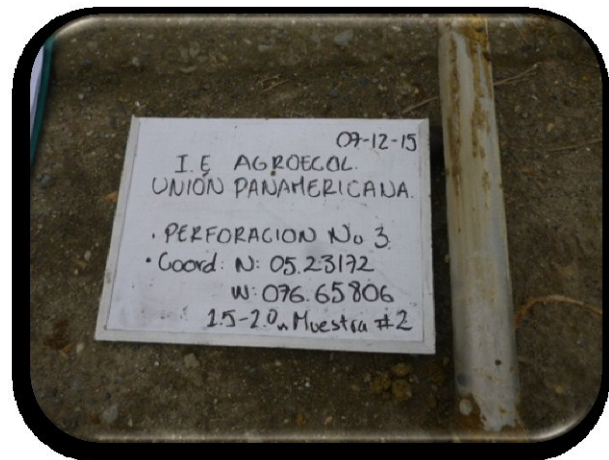 07-12-15
I.E AGROECOL.
UNIÓN PANAMERICANA.
· PERFORACION No 3.
· Coord: N: 05.23172
W: 076.65806
1.5-2.0m Muestra #2